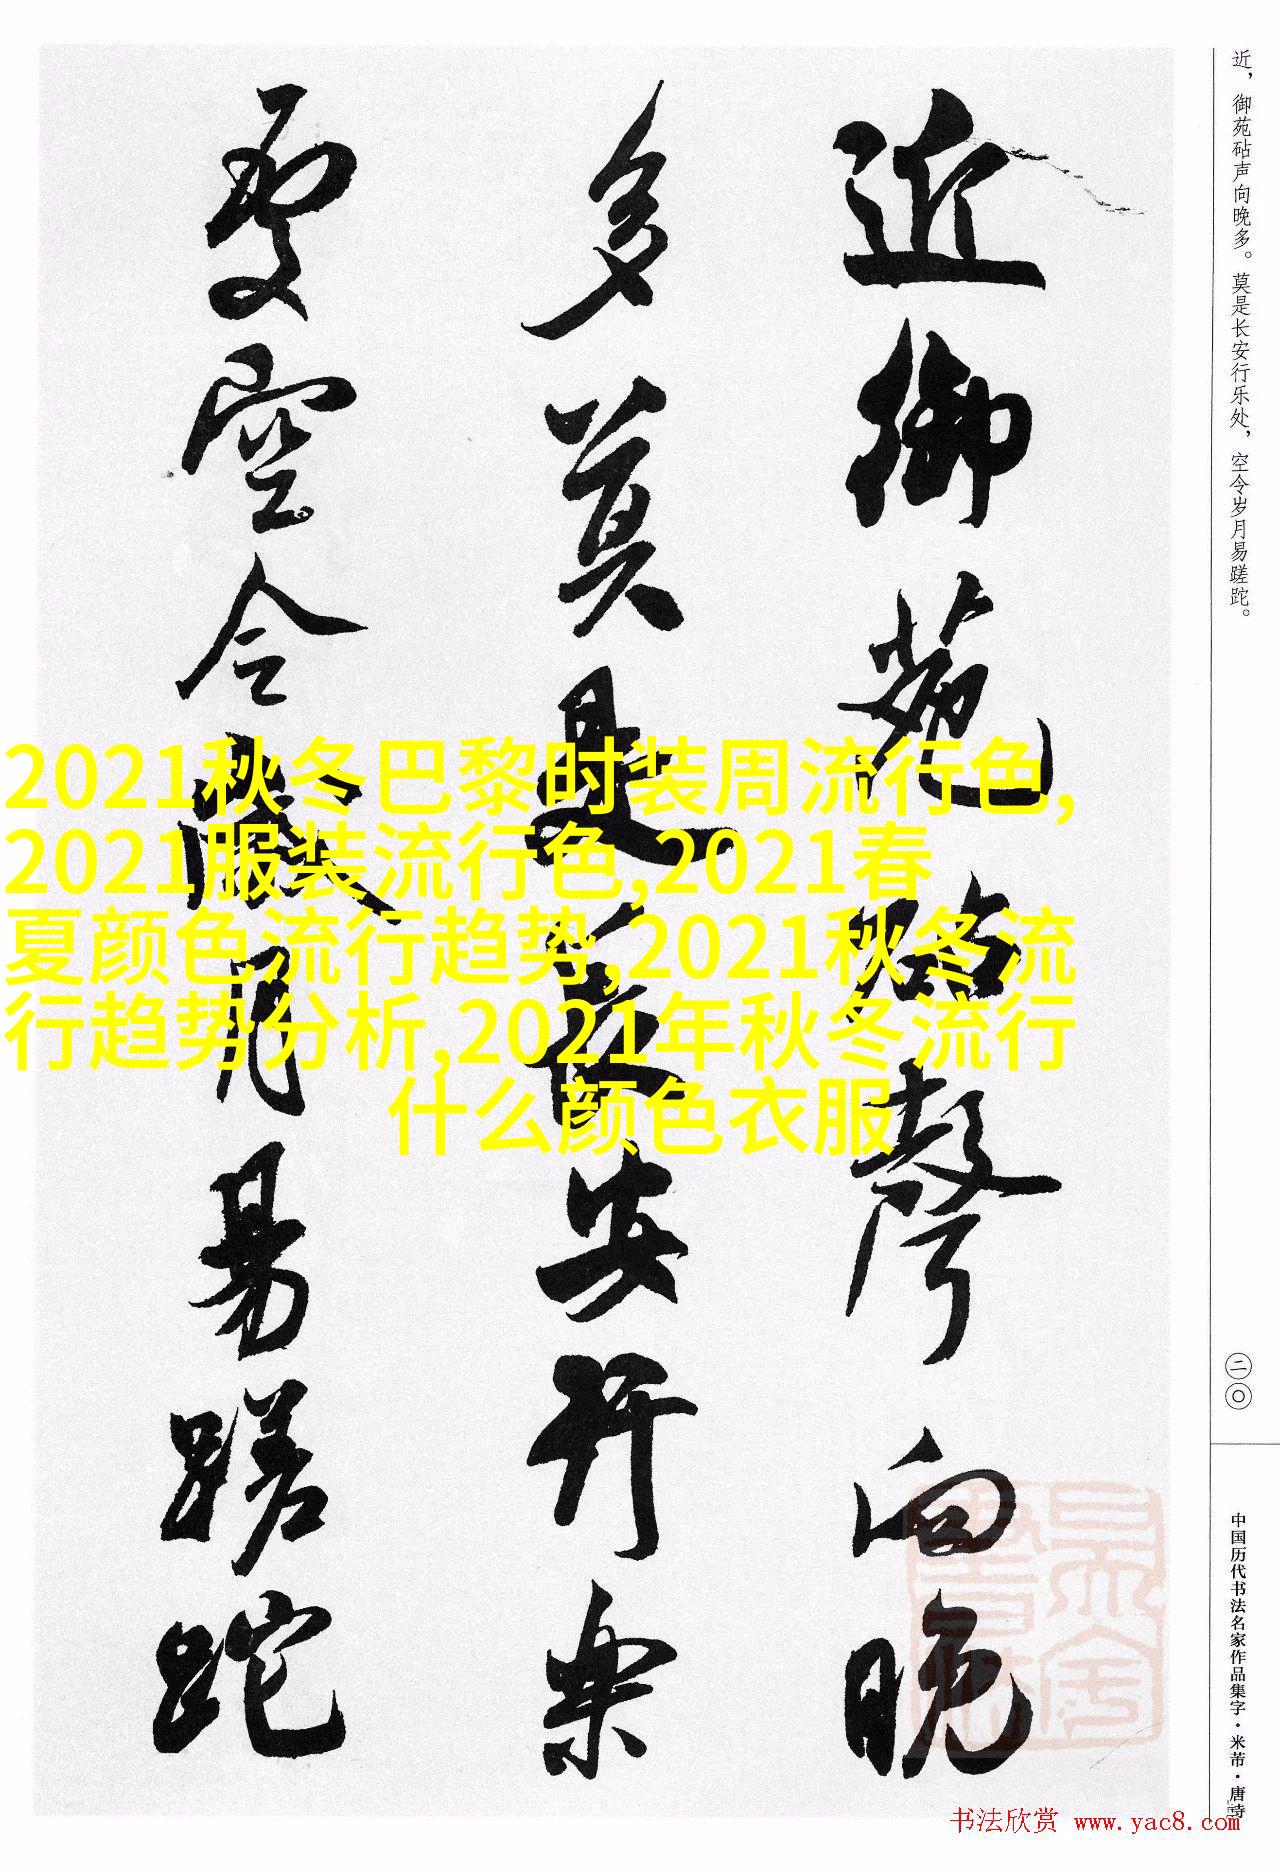 近，御苑砧声向晚多。莫是长安行乐处，空令岁月易蹉跎。
近御苑砧聲向晚
多莫是長安行樂
處空令歲月易蹉跎
2021秋冬巴黎时装周流行色,
2021服装流行色,2021春
夏颜色流行趋势,2021秋冬流
行趋势分析,2021年秋冬流行
什么颜色衣服
二〇
中国历代书法名家作品集字·米芾·唐诗
书法欣赏 www.yac8.com